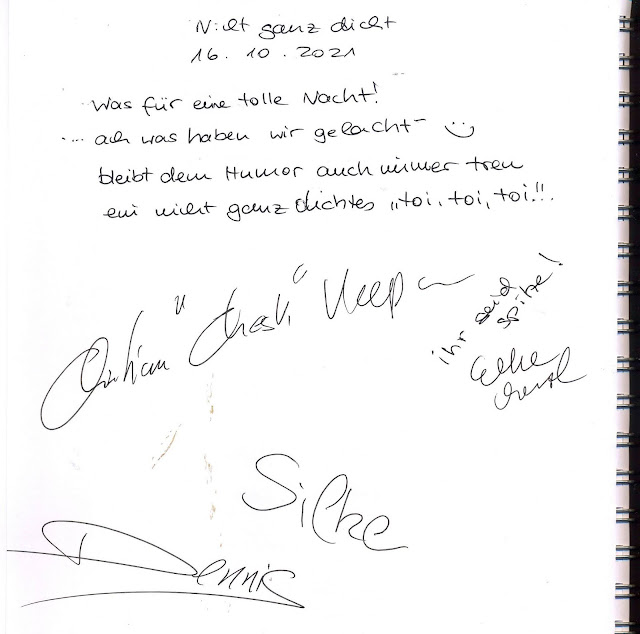 Nicht ganz dicht
16.10.2021
Was für eine tolle Nacht!
... ach was haben wir gelacht -
bleibt dem Humor auch immer treu
ein nicht ganz dichtes „toi, toi, toi!!.
ihr seid
spitze!
Silke
Dennis